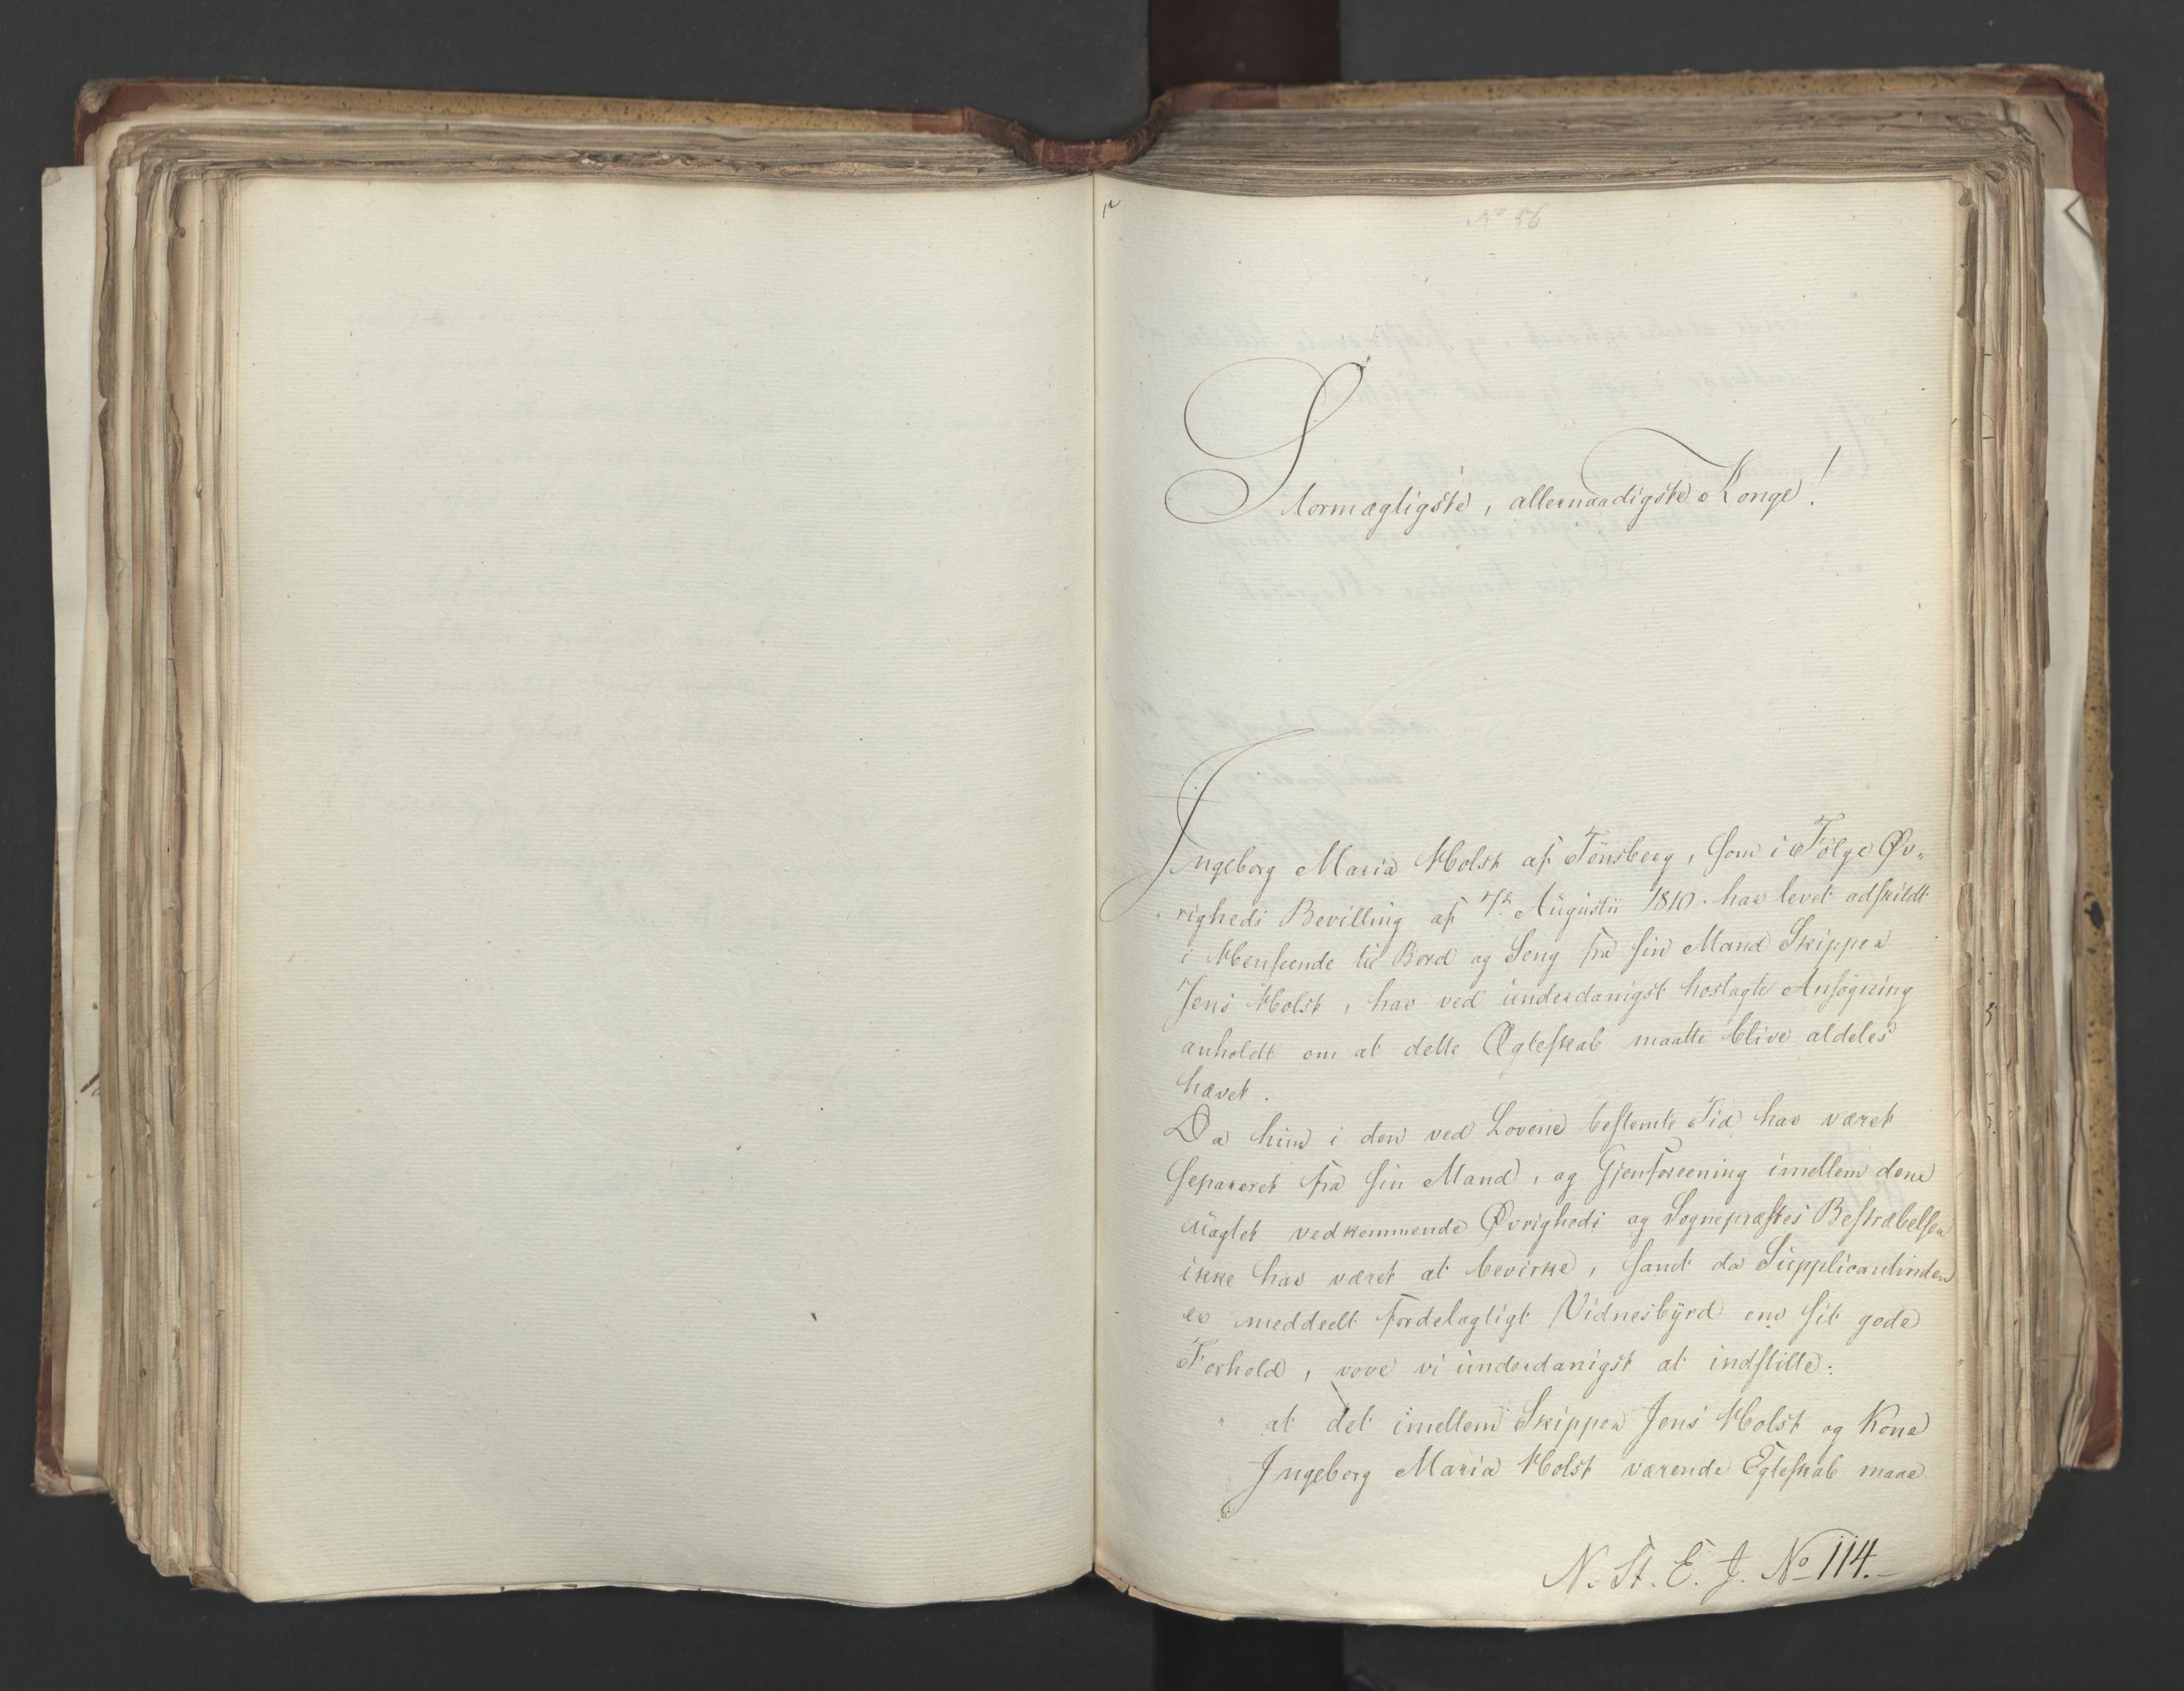 No 56
Stormægtigste, allernaadigste Konge!
Ingeborg Maria Holst af Tønsberg, som i Følge Øv-
righeds Bevilling af 7de Augusti 1810 har levet adskildt
i Henseende til Bord og Seng fra sin Mand Skipper
Jens Holst, har ved underdanigst hoslagte Ansøgning
anholdt om at dette Ægteskab maatte blive aldeles
hævet.
Da hun i den ved Lovene bestemte Tid har været
separeret fra sin Mand, og Gjenforeening imellem dem
uagtet vedkommende Øvrigheds og Sognepræstes Bestræbelser
ikke har været at bevirke, samt da Supplicantinden
er meddeelt fordelagtigt Vidnesbyrd om sit gode
Forhold, vove vi underdanigst at indstille:
" at det imellem Skipper Jens Holst og Kone
Ingeborg Maria Holst værende Egteskab maae
N. St. E. J. No 114.